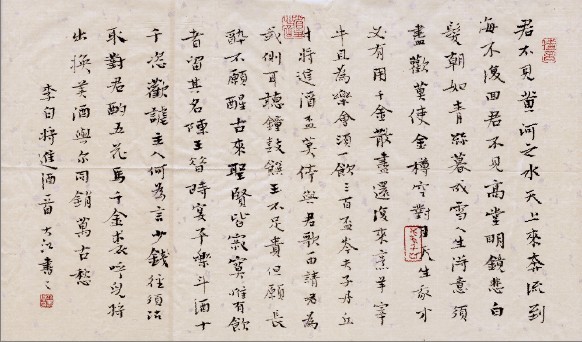 君不見黃河之水天上來奔流到
海不復回君不見高堂明鏡悲白
髮朝如青絲暮成雪人生得意須
盡歡莫使金樽空對月天生我才
必有用千金散盡還復來烹羊宰
牛且為樂會須一飲三百盃岑夫子丹丘
生將進酒盃莫停與君歌一曲請君為
我側耳聽鐘鼓饌玉不足貴但願長
醉不願醒古來聖賢皆寂寞惟有飲
者留其名陳王昔時宴平樂斗酒十
千恣歡謔主人何為言少錢徑須沽
取對君酌五花馬千金裘呼兒將
出換美酒與爾同銷萬古愁
李白將進酒一首大江書